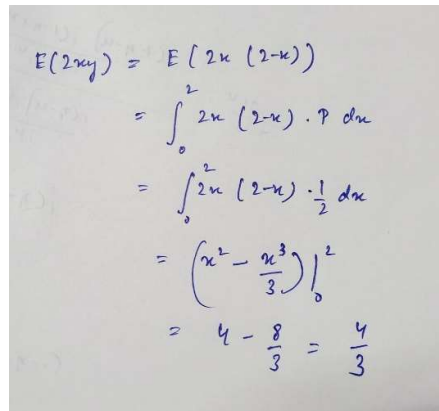 E(2xy) = E(2x (2-x))
= ∫₀² 2x (2-x) · P dx
= ∫₀² 2x (2-x) · 1/2 dx
= (x² - x³/3)|₀²
= 4 - 8/3 = 4/3